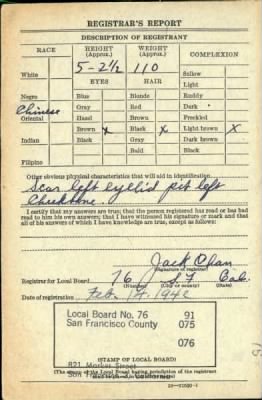 REGISTRAR'S REPORT
DESCRIPTION OF REGISTRANT
RACE HEIGHT (Approx.) WEIGHT (Approx.) COMPLEXION
5-2½ 110
White Sallow
EYES HAIR Light
Negro Blue Blonde Ruddy
Chinese Gray Red Dark
Oriental Hazel Brown Freckled
Brown x Black x Light brown X
Indian Black Gray Dark brown
Bald Black
Filipino
Other obvious physical characteristics that will aid in identification
Scar left eyelid pit left
Cheekbone.
I certify that my answers are true; that the person registered has read or has had
read to him his own answers; that I have witnessed his signature or mark and that
all of his answers of which I have knowledge are true, except as follows:
Jack Chan
(Signature of registrar)
Registrar for Local Board 76 S F Cal.
(Number) (City or county) (State)
Date of registration Feb. 1942
Local Board No. 76 91
San Francisco County 075
076
821 Market Street
(STAMP OF LOCAL BOARD)